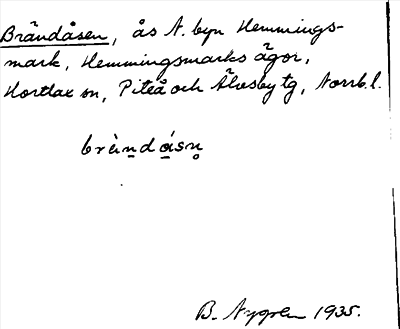 Brändåsen, ås N. byn Hemmings-
mark, Hemmingsmarks ägor,
Hortlax sn, Piteå och Älvsby tg, Norrb. l.
brà̤ndásn̥
B. Nygren 1935.